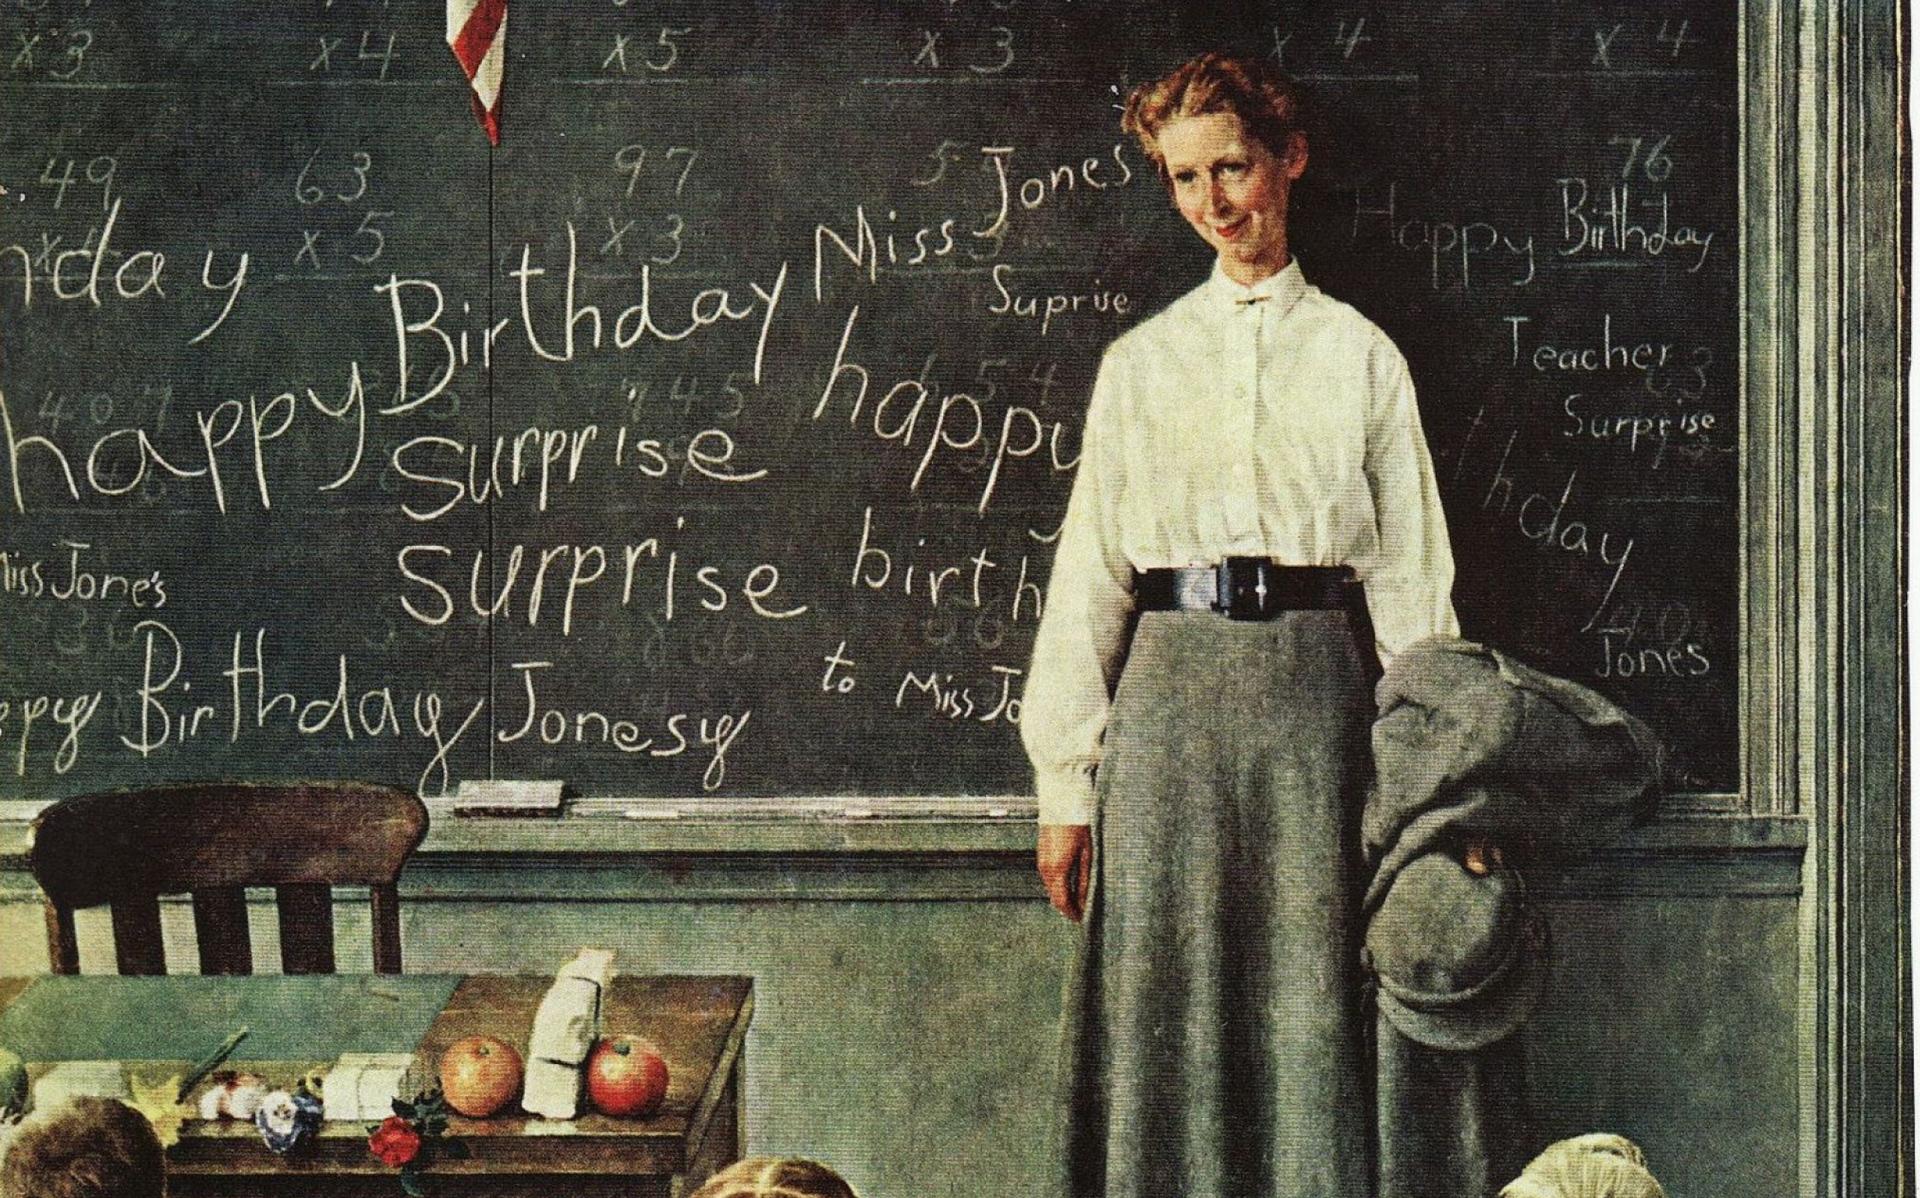 x 3   x 4   x 5   x 3   x 4   x 4
49   63   97   5   76
x 5   x 3
Jones
Miss
Happy Birthday
nday
Birthday
Suprise
Teacher
happy
happy
Surprise
Surprise
thday
Surprise
birth
Miss Jone's
to Miss Jo
Jones
ppy Birthday Jonesy